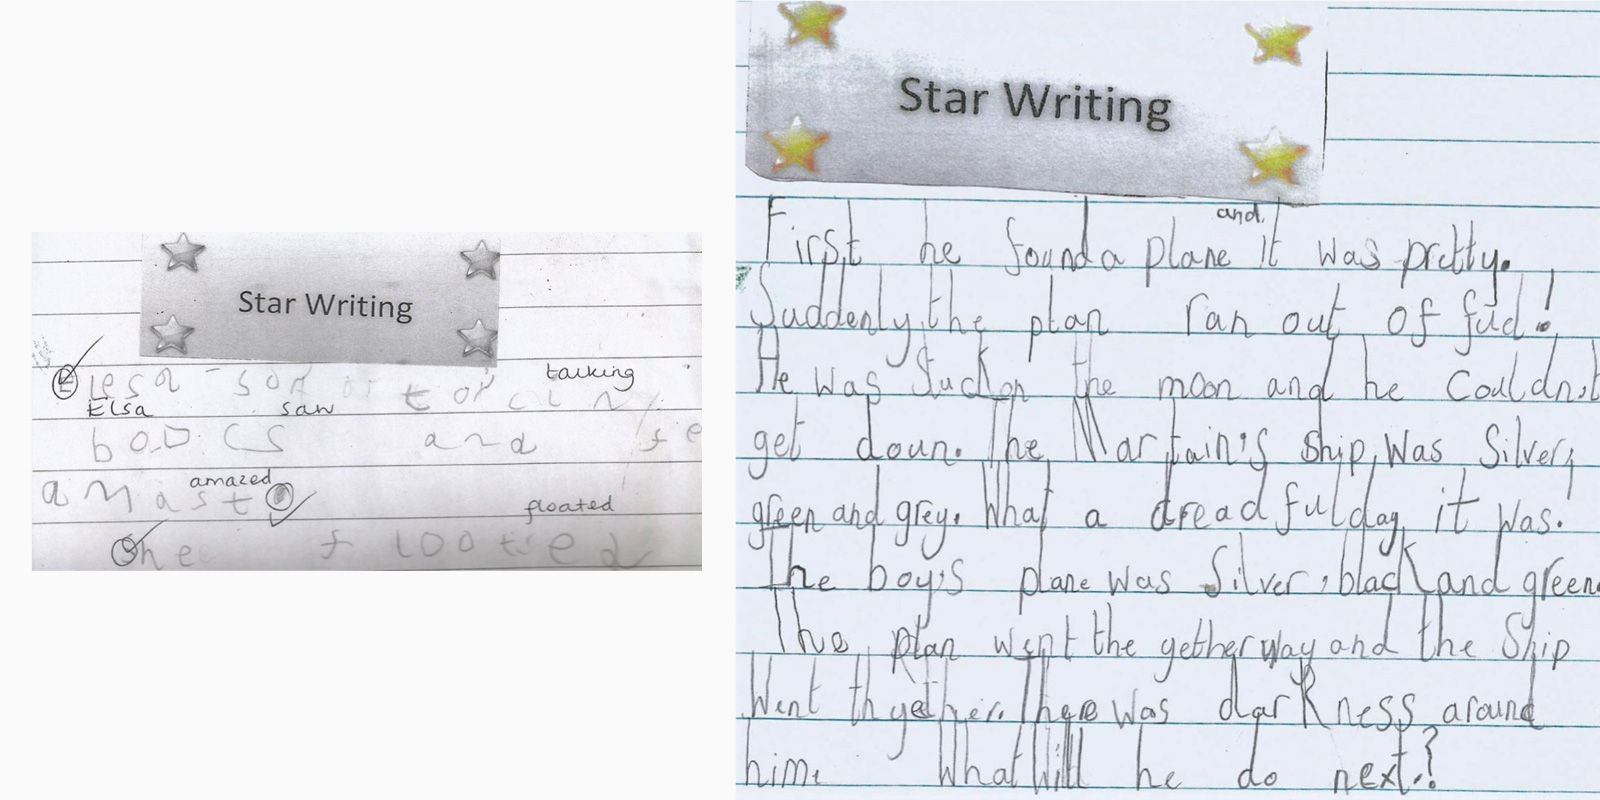 Star Writing
talking
Elsa saw
amazed
floated
Star Writing
and
First he found a plane it was pretty.
Suddenly, the plan ran out of fuel!
He was Suck on the moon and he Couldn't
get doun. The Martain's Ship, Was Silver,
green and grey. What a dreadful day it was.
The boy's plane was Silver, black and green.
The plan went the gether way and the Ship
Went thgether. There was darkness around
him. What Will he do next?